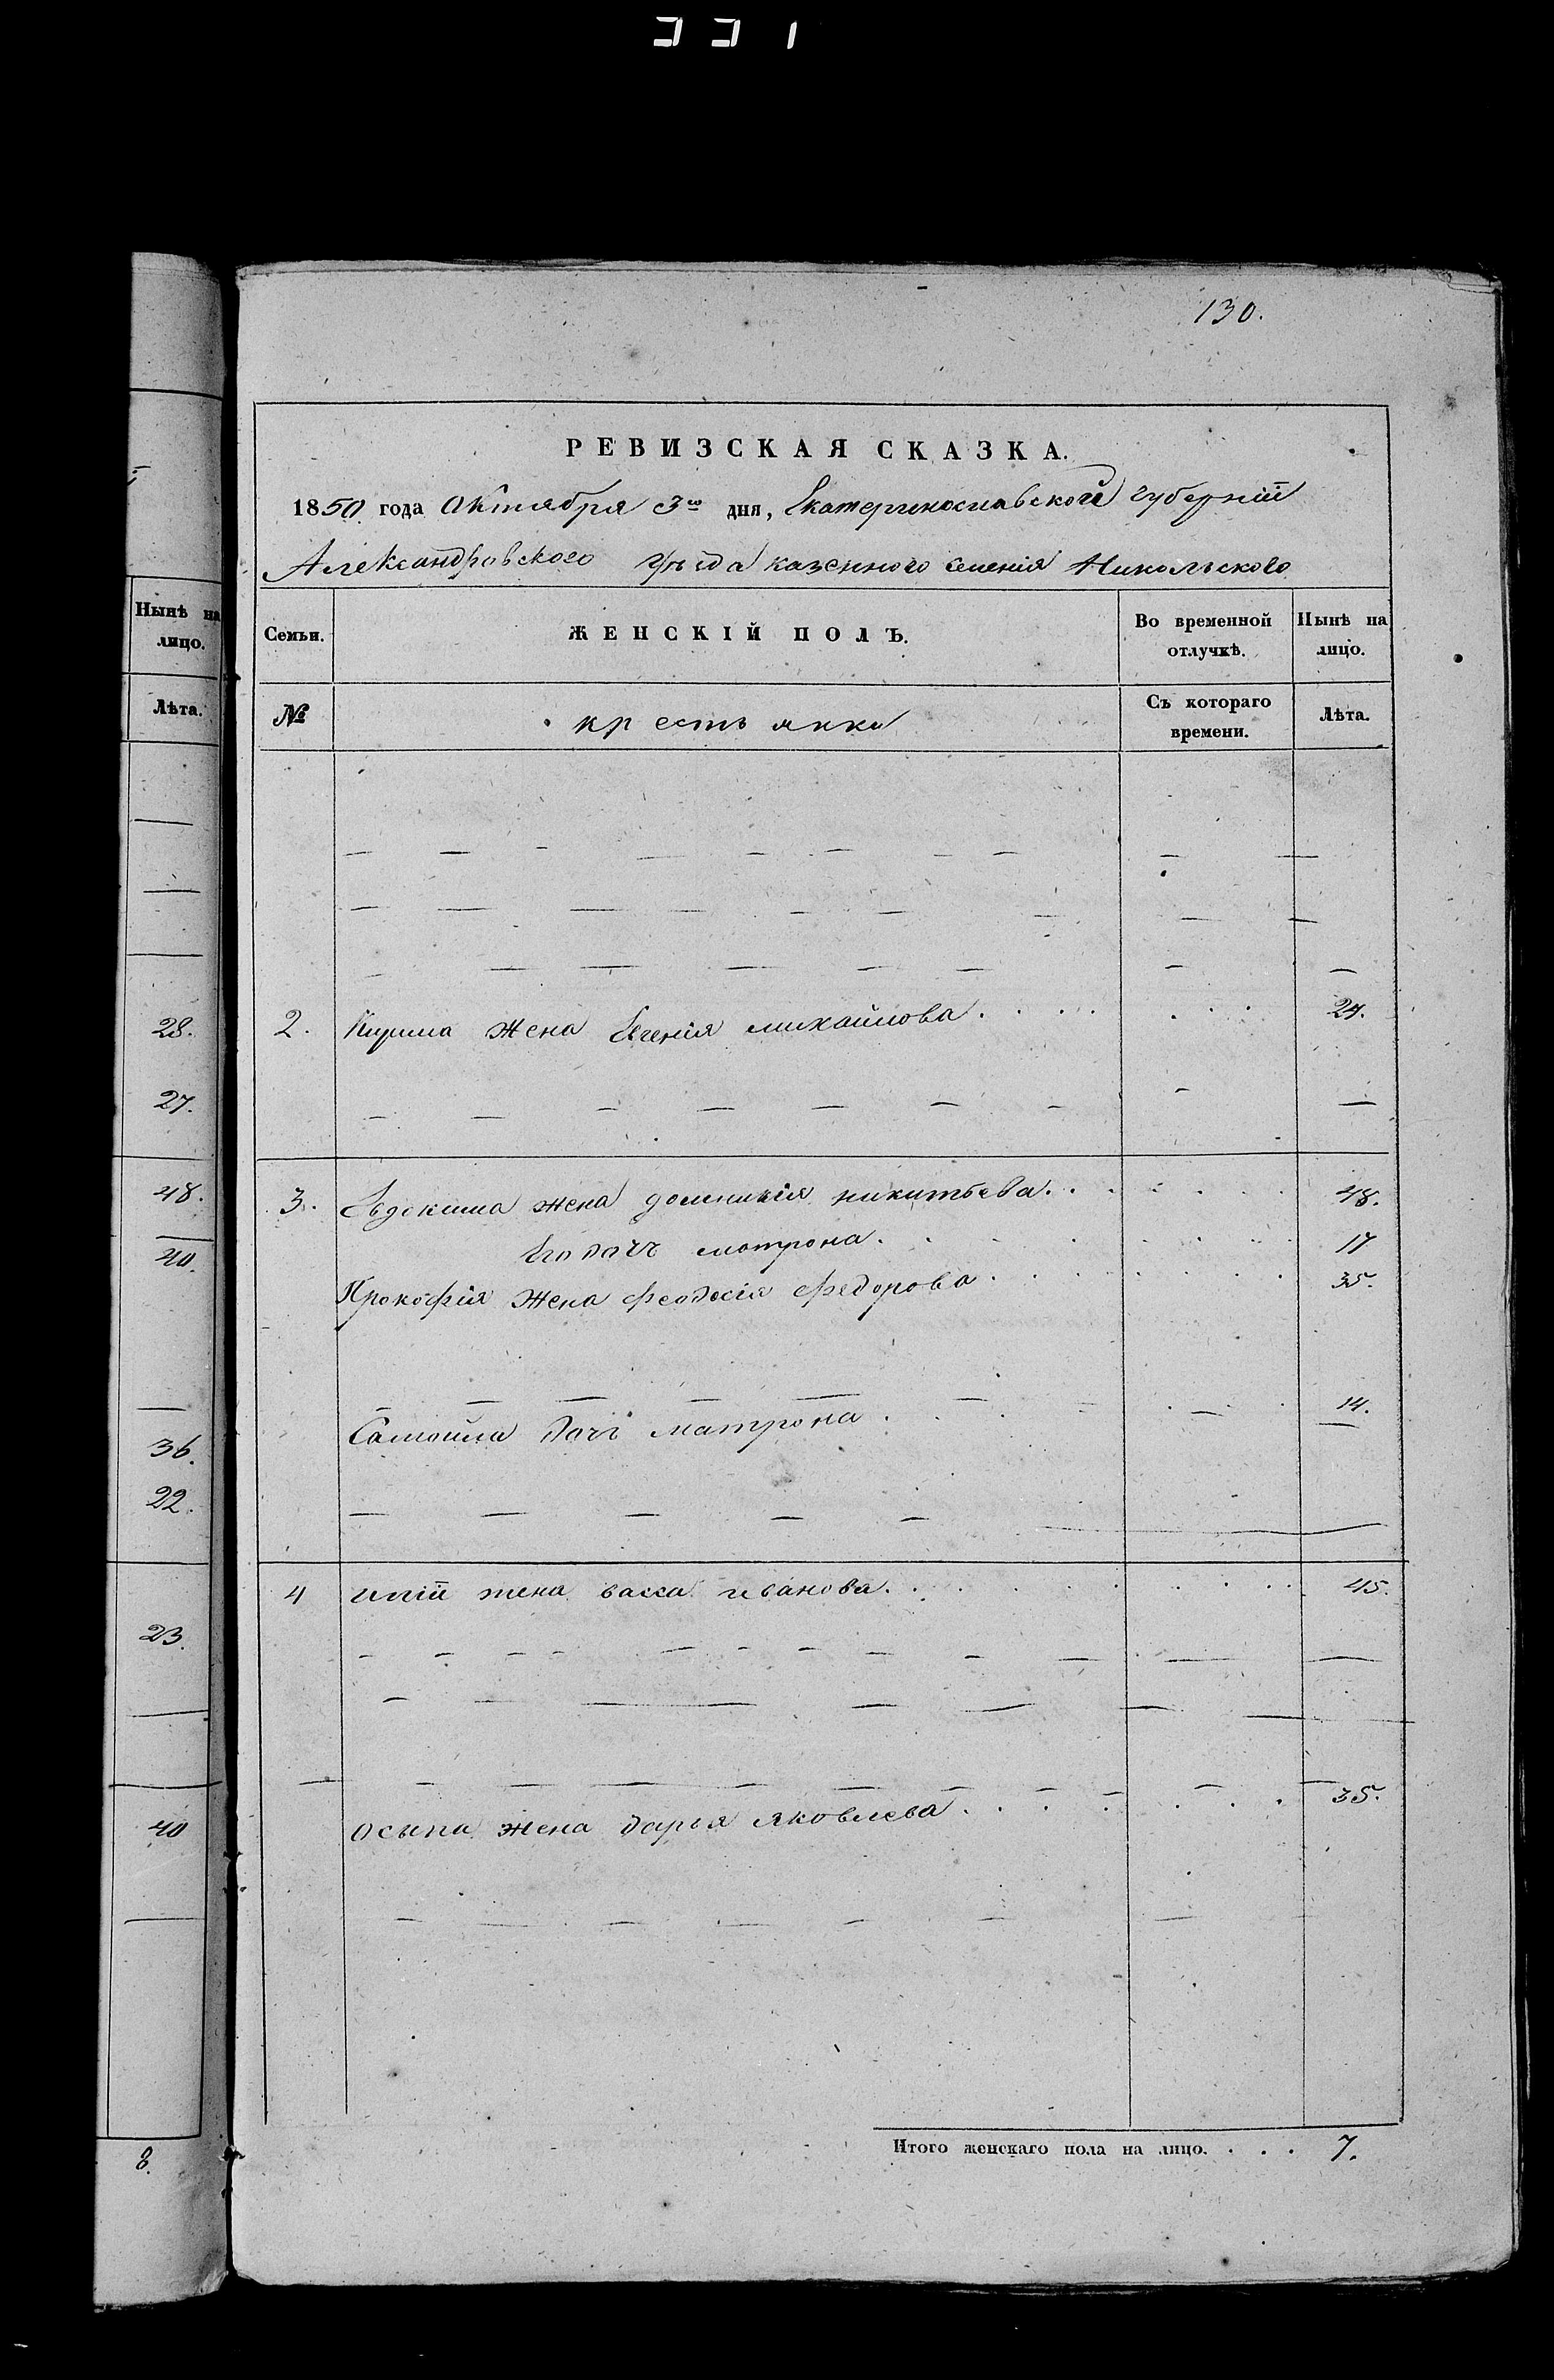 331
130.
РЕВИЗСКАЯ СКАЗКА.
1850 года Октября 3го дня, Екатеринославской губерніи
Александровского уѣзда казенного селенія Никольского
Нынѣ на
лицо.
Лѣта.
28.
27.
48.
40.
36.
22.
23.
40
8.
Семьи. ЖЕНСКІЙ ПОЛЪ. Во временной отлучкѣ. Нынѣ на лицо.
№ крестьянки Съ котораго времени. Лѣта.
2. жена Евгенія михайлова 24.
3. Евдокима жена домникія никитьева 48.
Его дочь мотрона 17
Прокофія жена феодосія федорова 35.
Самойла дочь матрона 14.
4 иліи жена васса иванова 45.
осыпа жена дарья яковлева 35.
Итого женскаго пола на лицо. 7.